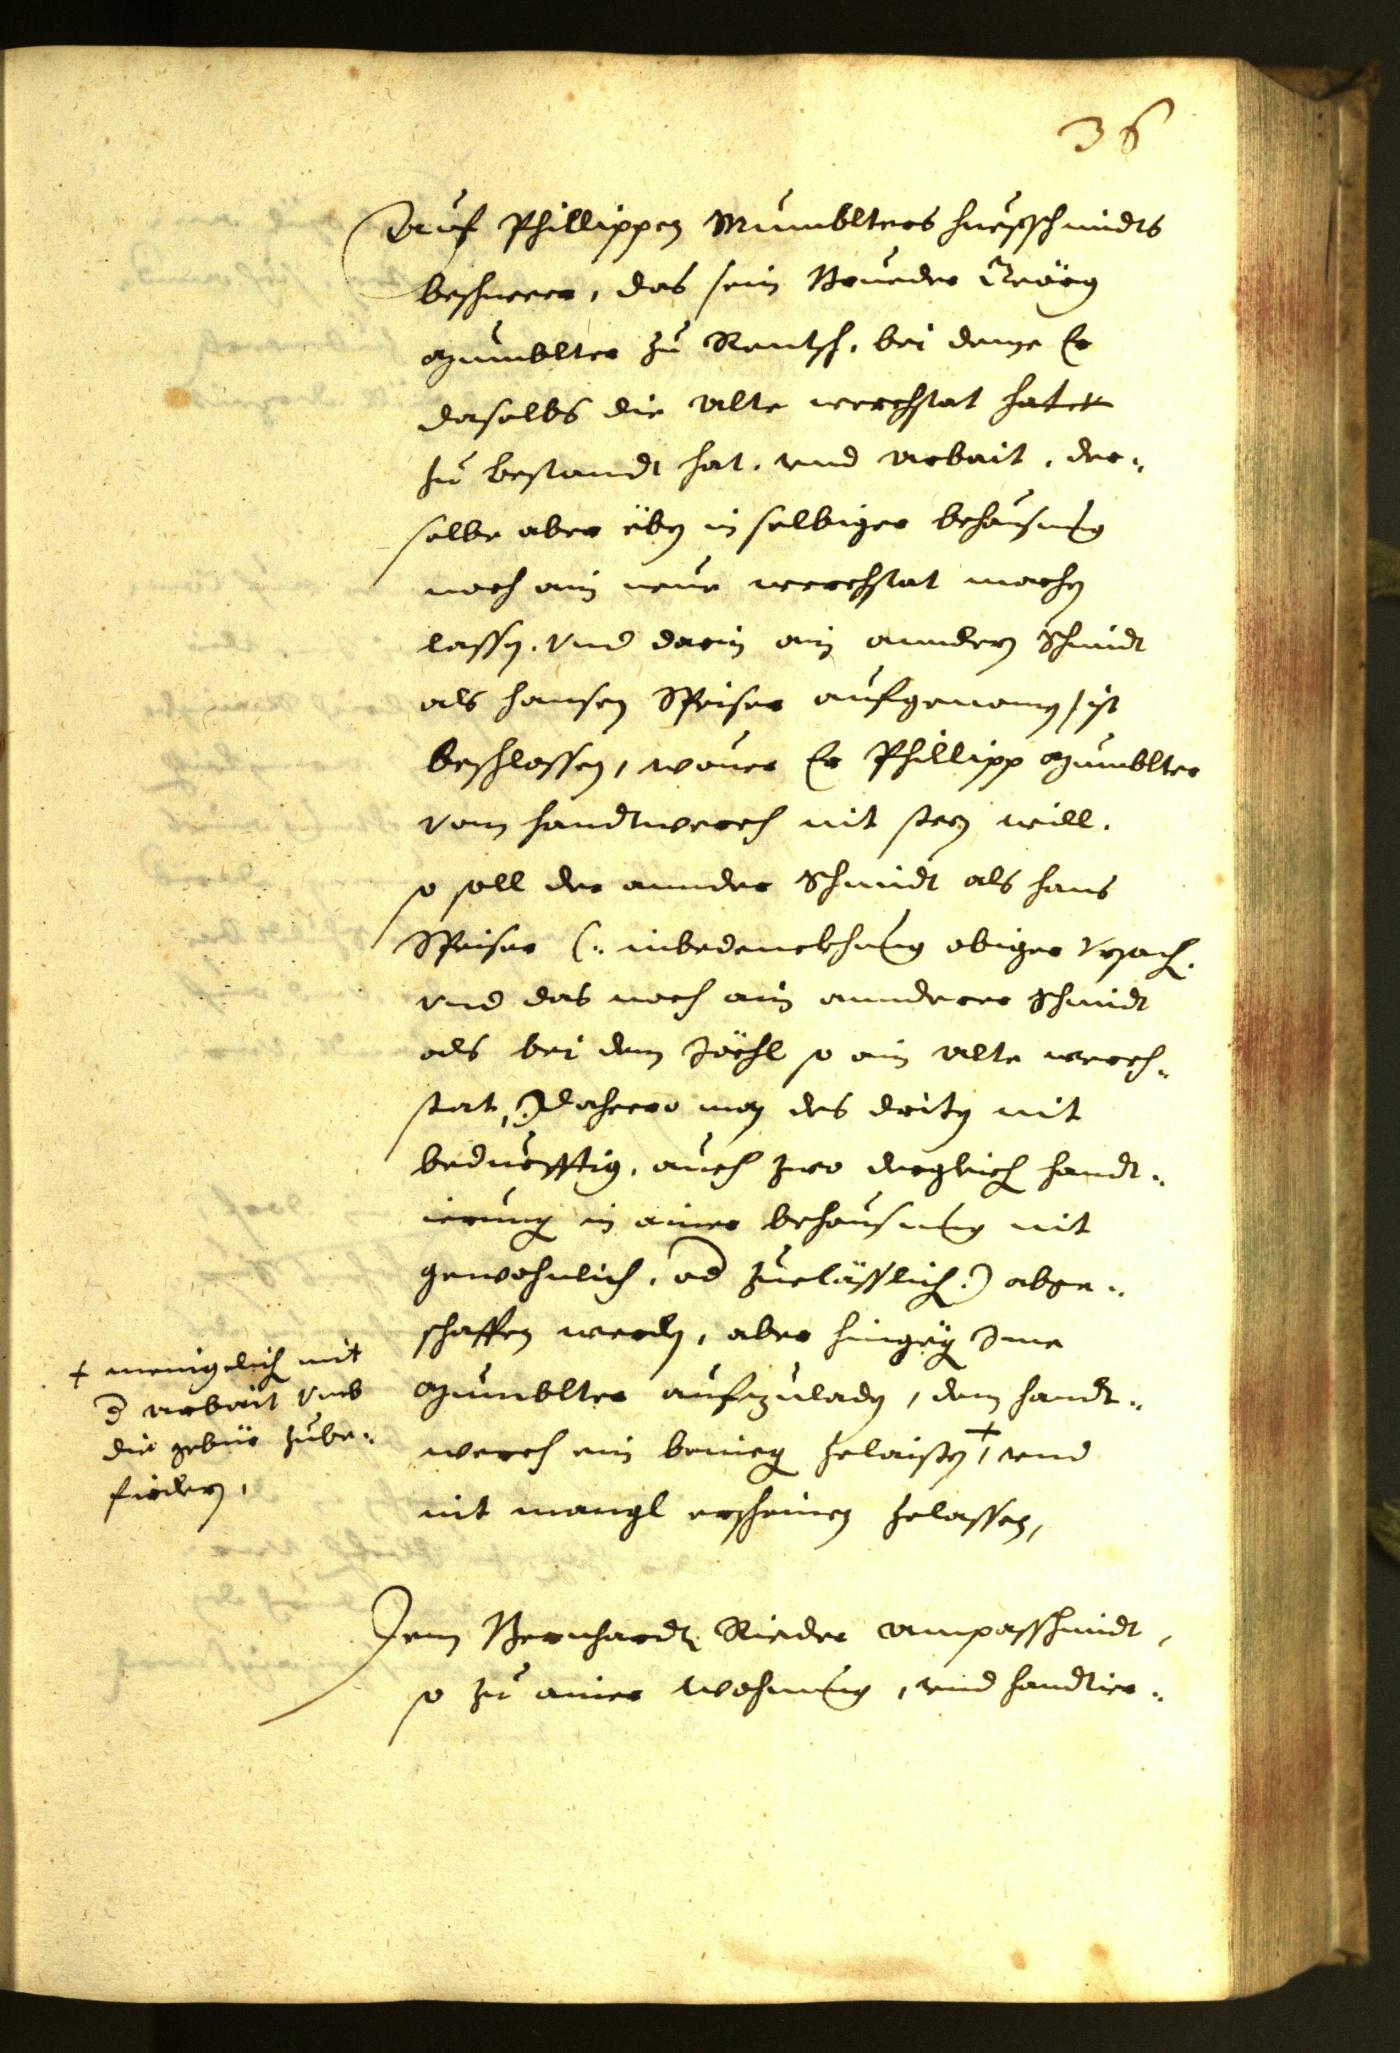 36
Auf Phillippen Mumblters huefschmidts
beschwer, das sein Brueder Geörg
Mumblter zu Rentsch, bei deme Er
daselbs die alte werchstat hatet
zu bestandt hat, vnd arbait, der¬
selbe aber üben in selbiger behausung
noch ain neue werchstat machen
lassen, vnd darin ain anndern Schmidt
als hansen Speiser aufgenomen, ist
beschlossen, wouer Er Phillipp Mumblter
vom handtwerch nit sten will,
so soll der annder Schmidt als hans
Speiser (: in bedenckhung obiger vrsach,
vnd das noch ain annderer Schmidt
als bei dem Jöchl so ain alte werch¬
stat, :) dahero man des driten nit
bedürfftig, auch zwo dergleich handt¬
ierung in ainer behausung nit
gewohnlich, od zuelässlich :) abge¬
schaffen werden, aber hingegen Ime
Mumblter aufzuladen, dem handt¬
werch ein benieg zelaisten +, vnd
nit mangl erscheinen zelassen,
+ menigelich mit
d arbait vmb
die gebür zube¬
fürdern,
Dem Bernhardt Rieder ampasschmidt,
so zu ainer wohnung, vnd handtier¬